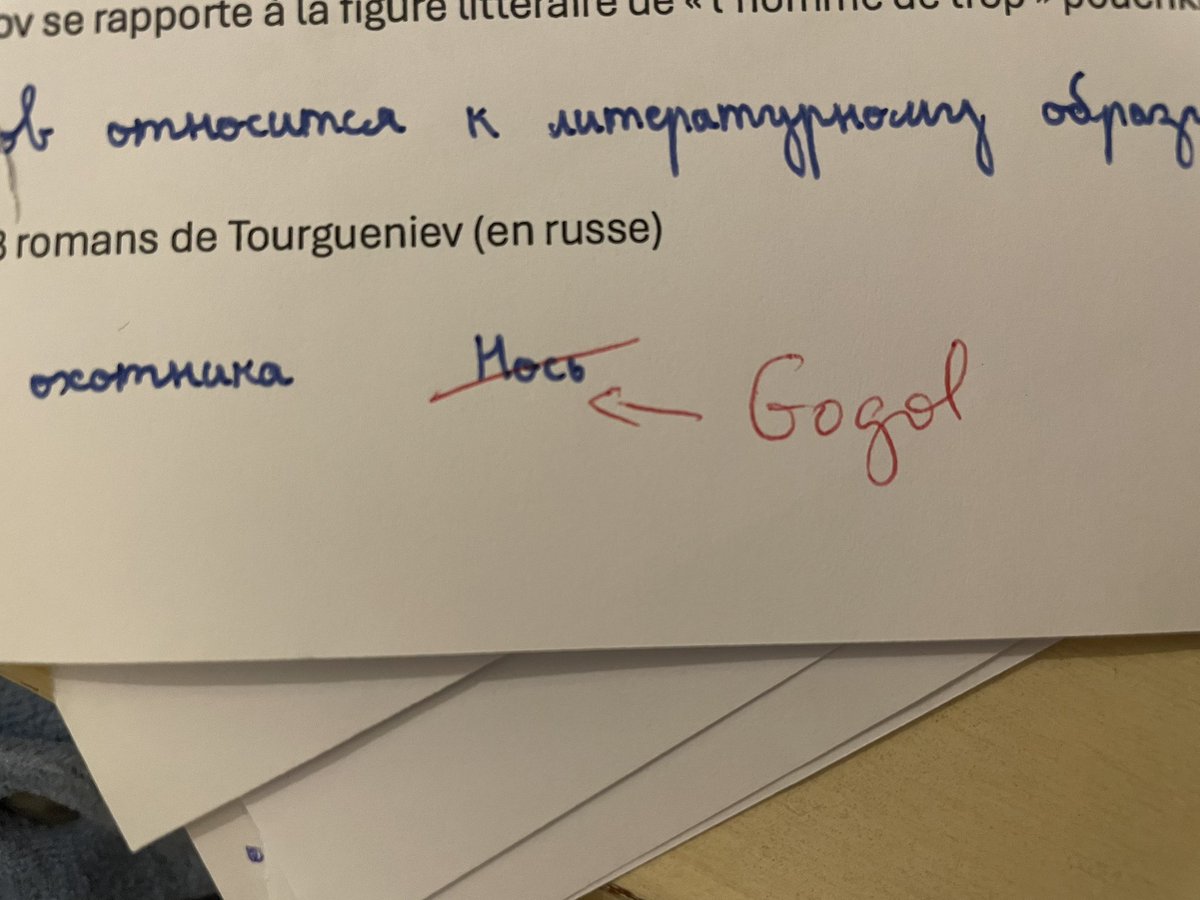 ov se rapporte à la figure littéraire de « l'homme de trop »
ов относится к литературному образу
3 romans de Tourgueniev (en russe)
охотника Нось Gogol